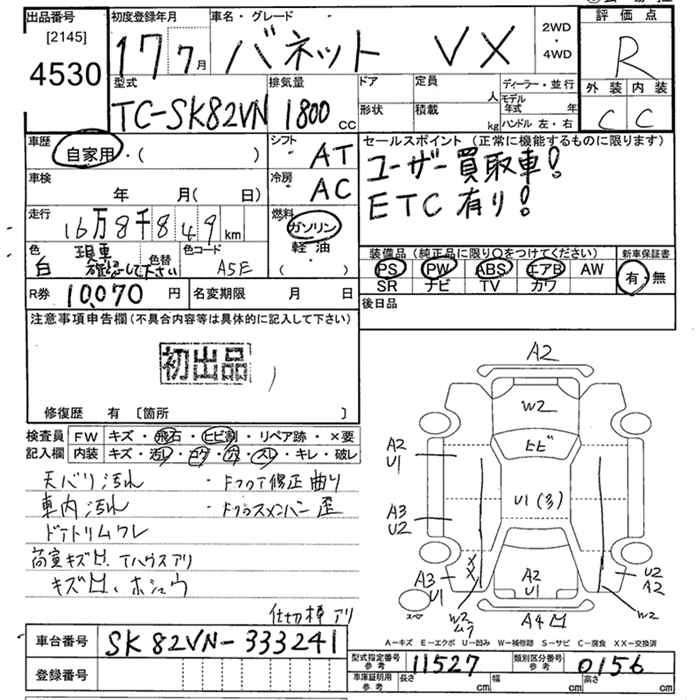 出品番号 初度登録年月 車名・グレード 評価点
[2145]
4530 17 7月 バネット VX 2WD・4WD R
型式 排気量 ドア 定員 人 ディーラー・並行 外装 内装
TC-SK82VN 1800cc 形状 積載 kg モデル年式 年 ハンドル 左・右 C C
車歴 自家用・( ) シフト AT セールスポイント (正常に機能するものに限ります)
ユーザー買取車!
車検 年 月( 日) 冷房 AC
ETC有り!
走行 16万8千849km 燃料 ガソリン 軽油 ( )
色 白 現車確認して下さい 色替 色コード A5E
装備品(純正品に限り○をつけてください) 新車保証書
PS PW ABS エアB AW 有・無
SR ナビ TV カワ
R券 10,070円 名変期限 月 日
後日品
注意事項申告欄(不具合内容等は具体的に記入して下さい)
初出品
修復歴 有 [箇所 ]
検査員 FW キズ・飛石・ヒビ割・リペア跡・×要
記入欄 内装 キズ・汚レ・コゲ・穴・スレ・キレ・破レ
天バリ汚れ
車内汚れ
ドアトリムワレ
荷室キズ凹
キズ凹、ホシュウ
仕切棒アリ
A2
W2
ヒビ
A2
U1
U1
A3
U2
A3
U1
A2
U1
U2
A2
W2
W2
ムラ
A4凹
スペア
A-キズ E-エクボ U-凹み W-補修跡 S-サビ C-腐食 XX-交換済
車台番号 SK82VN-333241
登録番号
型式指定番号 参考 11527 類別区分番号 参考 0156
車庫証明用 参考 長さ cm 幅 cm 高さ cm